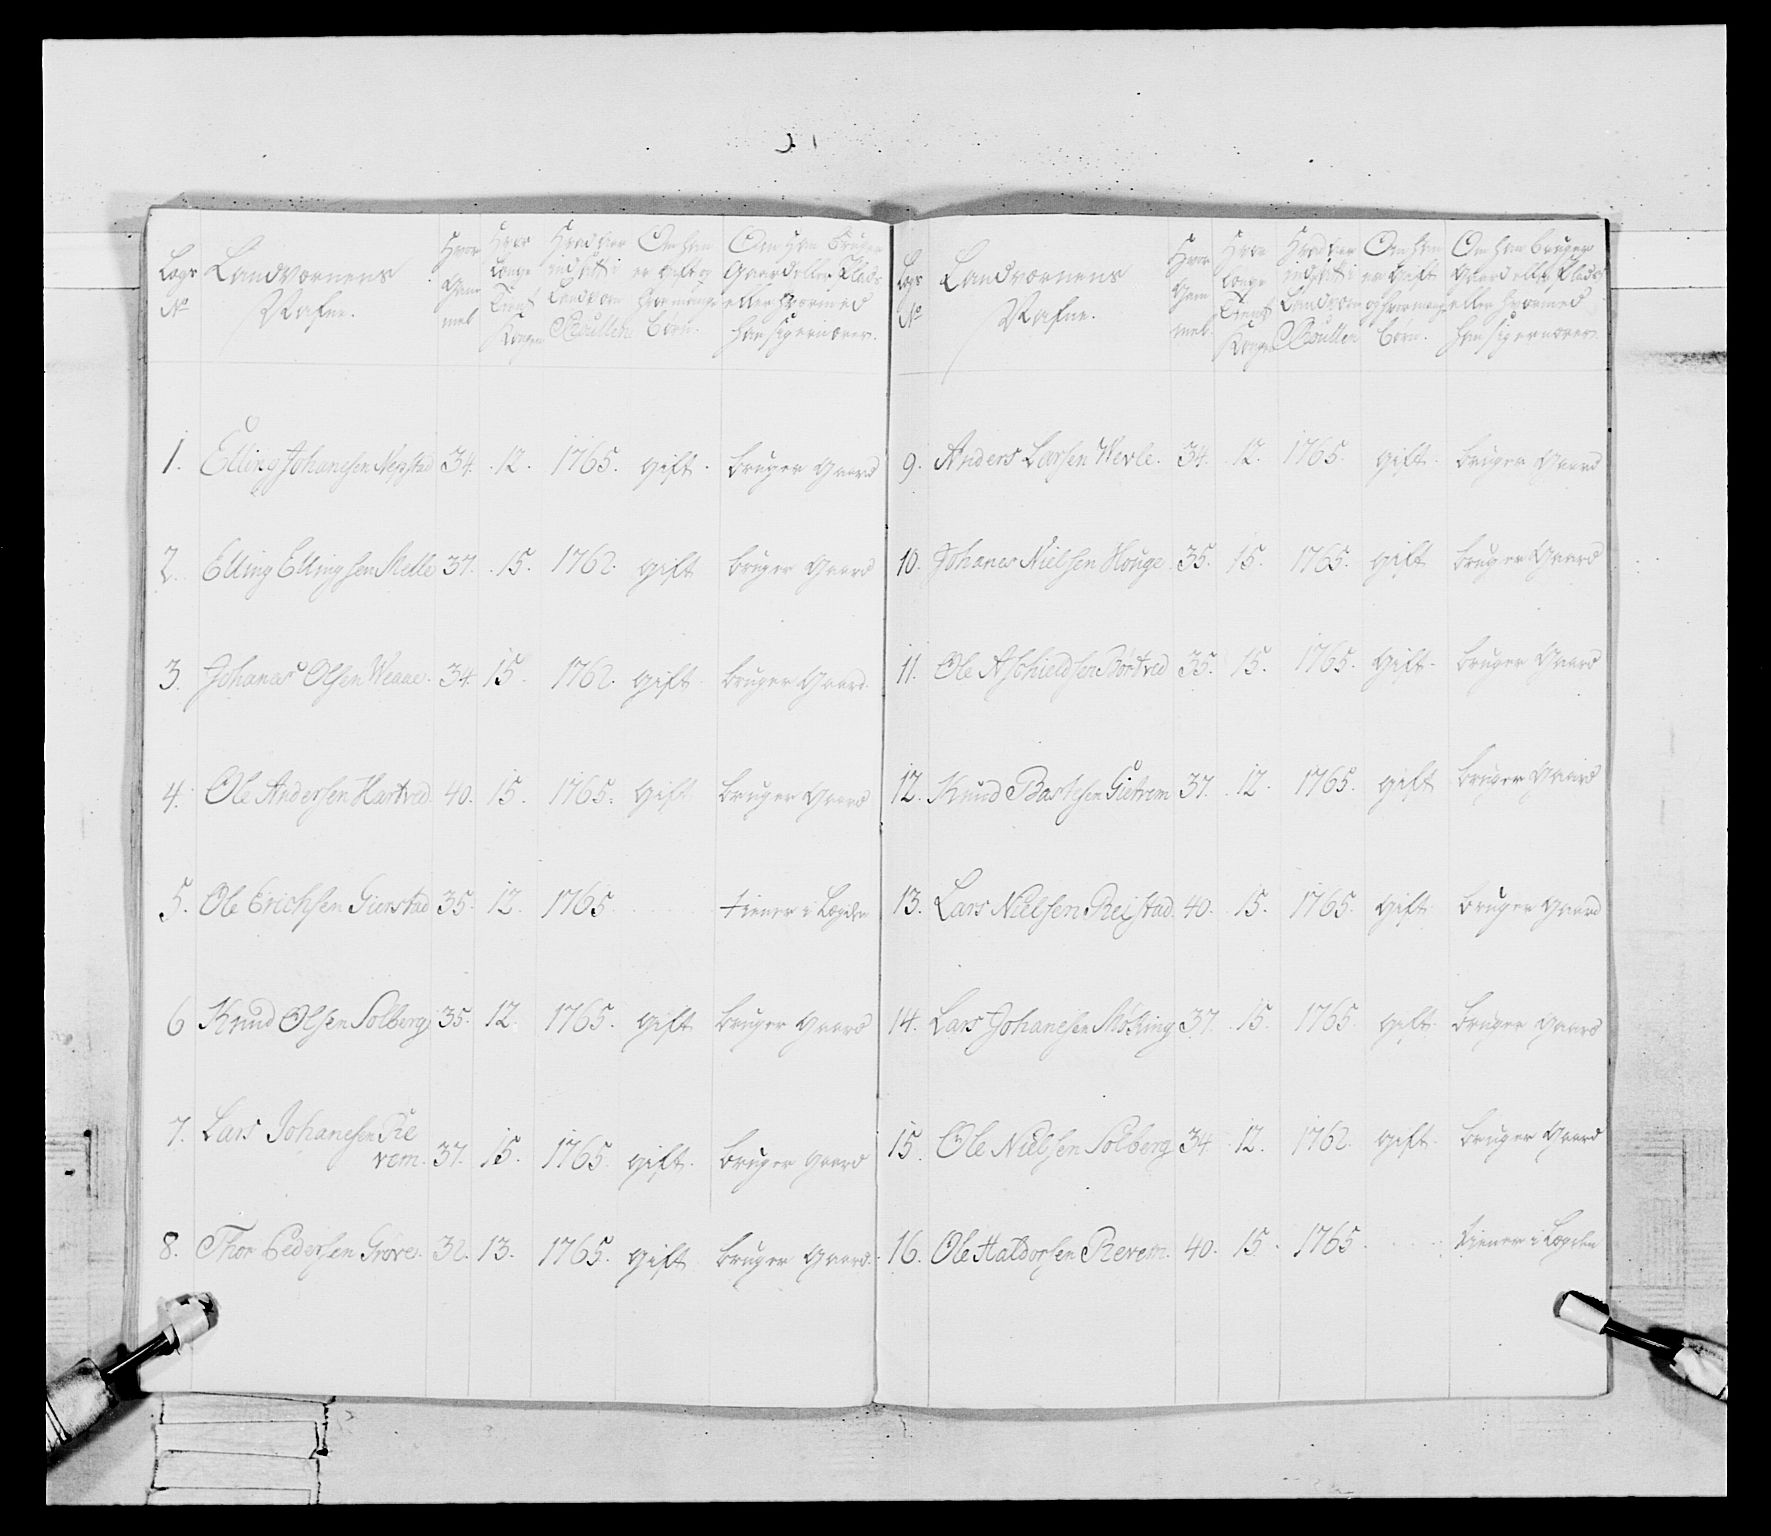 Lægs No
Landværnens Nafne.
Hvor Gam mel
Hvor Længe Tient Kongen
Hvad Aar indsatt i Landværn Roullen
Om han er Gift og hvor mange Børn.
Om han bruger Gaard eller Plads eller hvormed han sig ernærer.
1. Elling Johanesen Negstad 34. 12. 1765. gift. bruger Gaard
2. Elling Ellingsen Melle 37. 15. 1762. gift bruger Gaard
3. Johanes Olsen Weaae. 34. 15. 1762. gift. bruger Gaard.
4. Ole Andersen Hartved 40. 15. 1765. gift bruger Gaard
5. Ole Erichsen Gierstad 35. 12. 1765 tiener i Lægden
6 Knud Olsen Solberg 35. 12. 1765. gift bruger Gaard
7. Lars Johanesen Re
vem. 37. 15. 1765. gift. bruger Gaard
8. Thor Pedersen Grøve. 32. 13. 1765. gift bruger Gaard.
Lægs No
Landværnens Nafne.
Hvor Gam mel.
Hvor længe Tient Konge
Hvad Aar indsatt i Landværn Roullen
Om han er Gift og hvor mange børn.
Om han bruger Gaard eller Plads eller hvormed han sig ernærer.
9. Anders Larsen Nevle. 34. 12. 1765. gift. bruger Gaard
10. Johanes Nielsen Houge 35. 15. 1765. gift bruger Gaard
11. Ole Aschieldsen Børtved 35. 15. 1765. Gift. bruger Gaard
12. Knud Bastesen Gietrem 37. 12. 1765. gift bruger Gaard
13. Lars Nielsen Reistad. 40. 15. 1765. gift. bruger Gaard
14. Lars Johanesen Møking 37. 15. 1765. gift. bruger Gaard
15. Ole Nielsen Solberg 34 12. 1762. gift. bruger Gaard
16. Ole Haldorsen Revem. 40. 15. 1765. tiener i Lægden